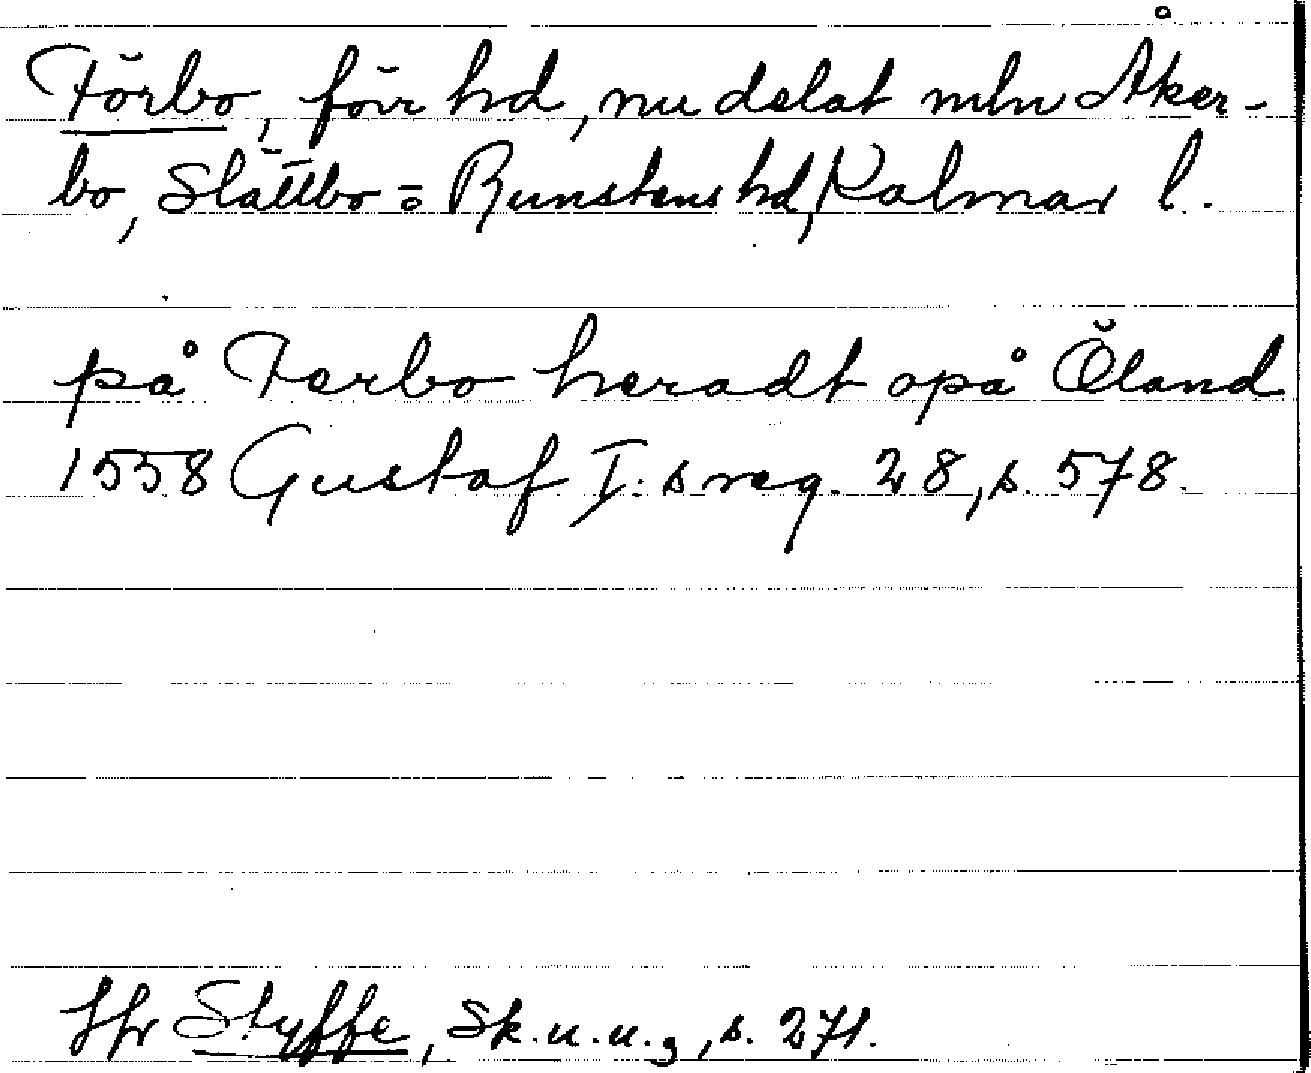 Förbo, förr hd, nu delat mln Åker-
bo, Slättbo o Runstens hd, Kalmar l.
på Ferbo heradt opå Öland
1558 Gustaf I:s reg. 28, s. 578.
Jfr Styffe, Sk. u. u. 3, s. 271.